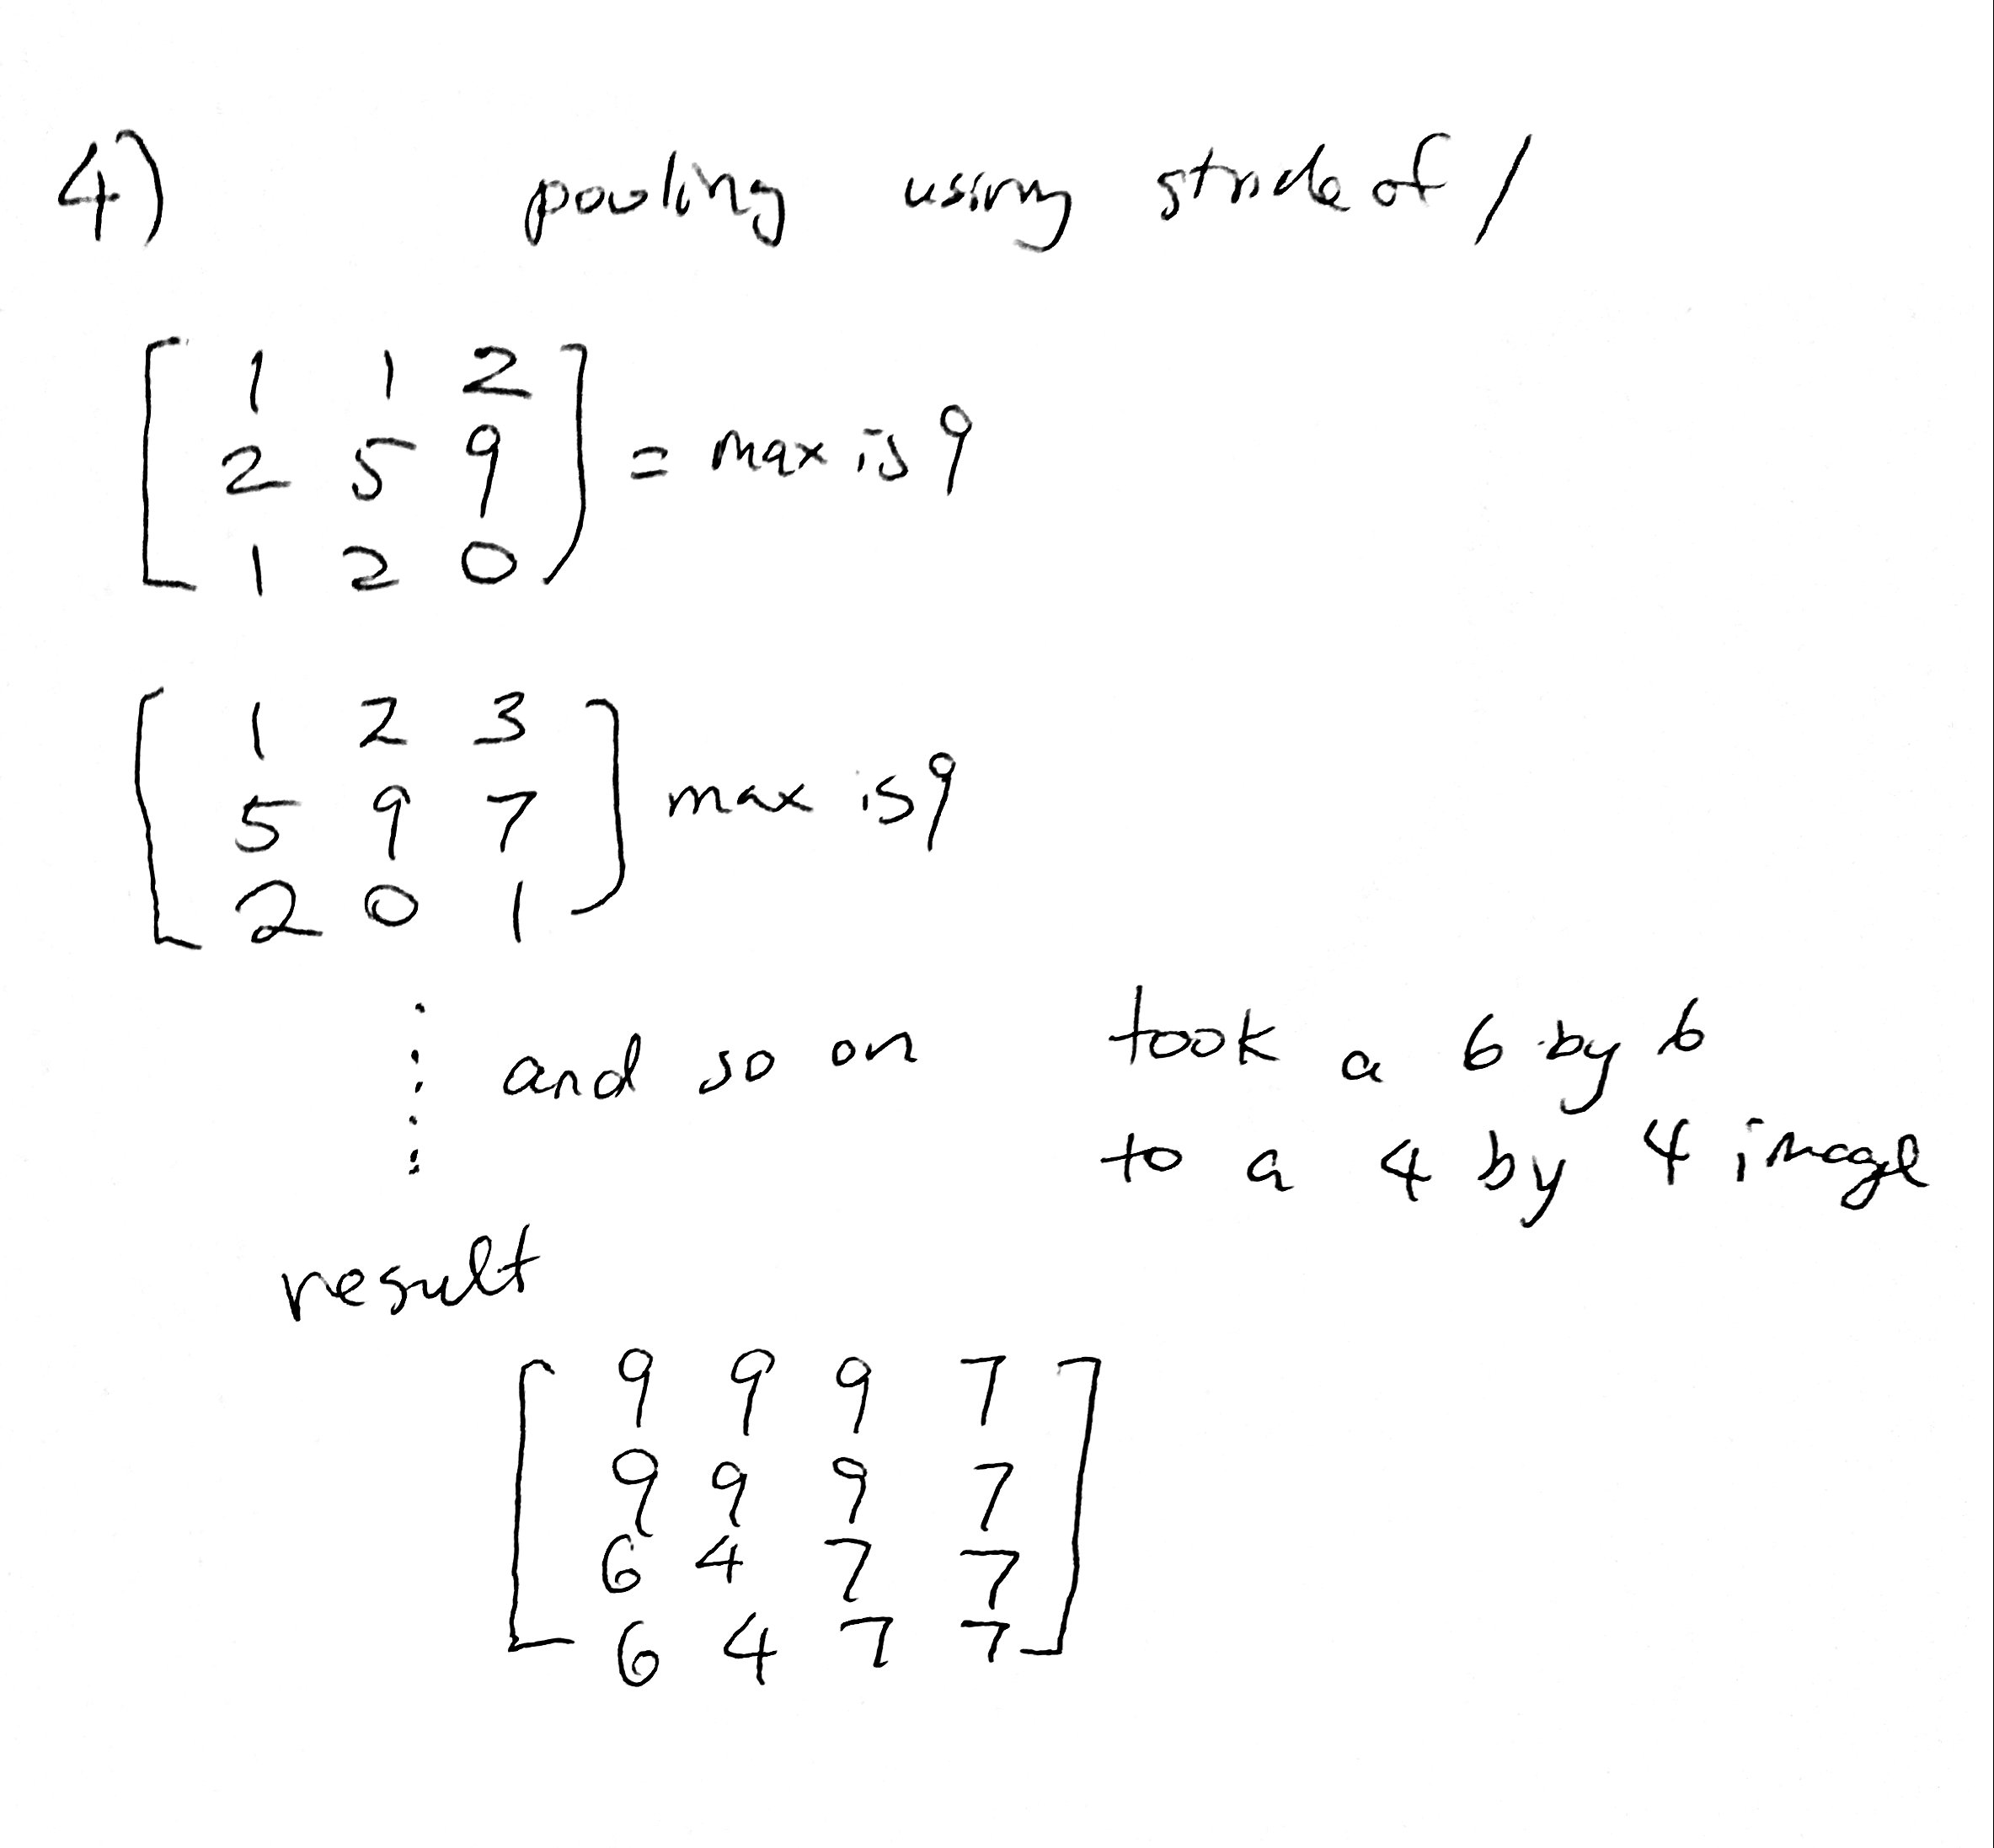 4) pooling using stride of 1
1 1 2
2 5 9 = max is 9
1 2 0
1 2 3
5 9 7 max is 9
2 0 1
and so on
took a 6 by 6
to a 4 by 4 image
result
9 9 9 7
9 9 9 7
6 4 7 7
6 4 7 7